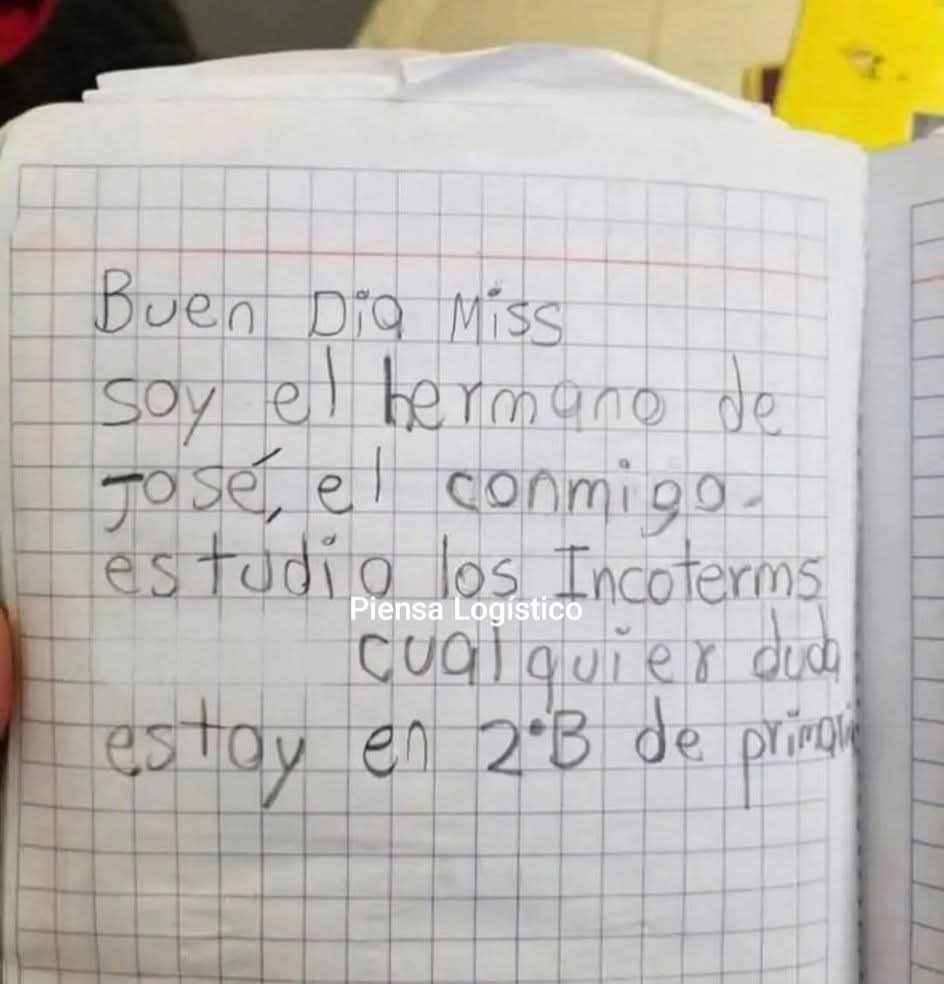 Buen Dia Miss
soy el hermano de
José, el conmigo.
estudio los Incoterms
Piensa Logístico
cualquier duda
estoy en 2°B de primari